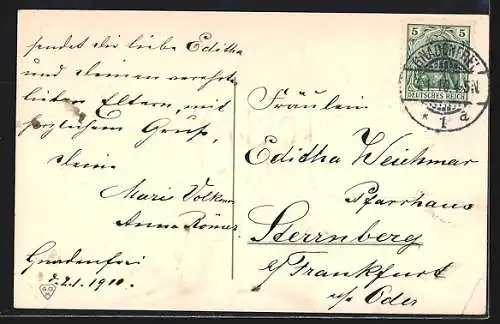 sendet dir liebe Editha
und deinen verehrten
lieben Eltern, mit
herzlichem Gruß,
deine
Mari Volkmer
Anna Römer
Gnadenfrei
d. 2.1.1910.
5 5
DEUTSCHES REICH
GNADENFREI
* 1 a
Fräulein
Editha Weichmar
Pfarrhaus
Sterrnberg
b/Frankfurt
a/ Oder